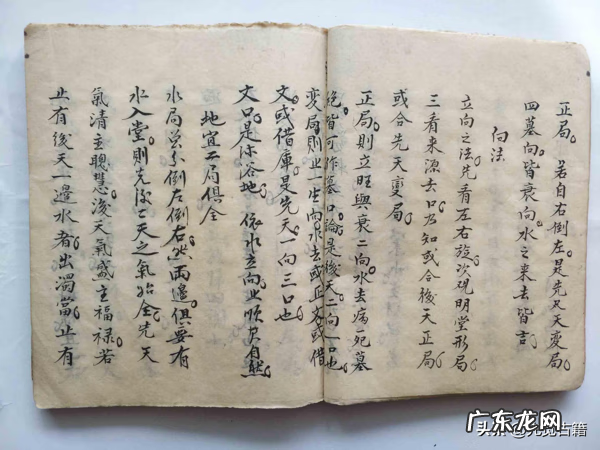 正局。若自右倒左。是先天变局。
四墓向。皆衰向。水之來去皆吉。
向法
立向之法。先看左右旋。次观明堂形局。
三看來源去口。乃知或合後天正局。
或合先天变局。
正局。則立旺與衰二向。水去病死墓
絕皆可作墓口論。是後天二向一口也。
变局。則止一生向。水去或正文。或借
文。或借庫。是先天一向三口也。
文口。是
地。依水立向。止順其自然。
地宜二局俱全
水局总分倒左倒右。必两邊俱要有
水入堂。則先後二天之氣始全。先天
氣清主聰慧。後天氣盛主福禄。若
止有後天一邊水者。出濁富。止有
头条@
古籍
广东龙网